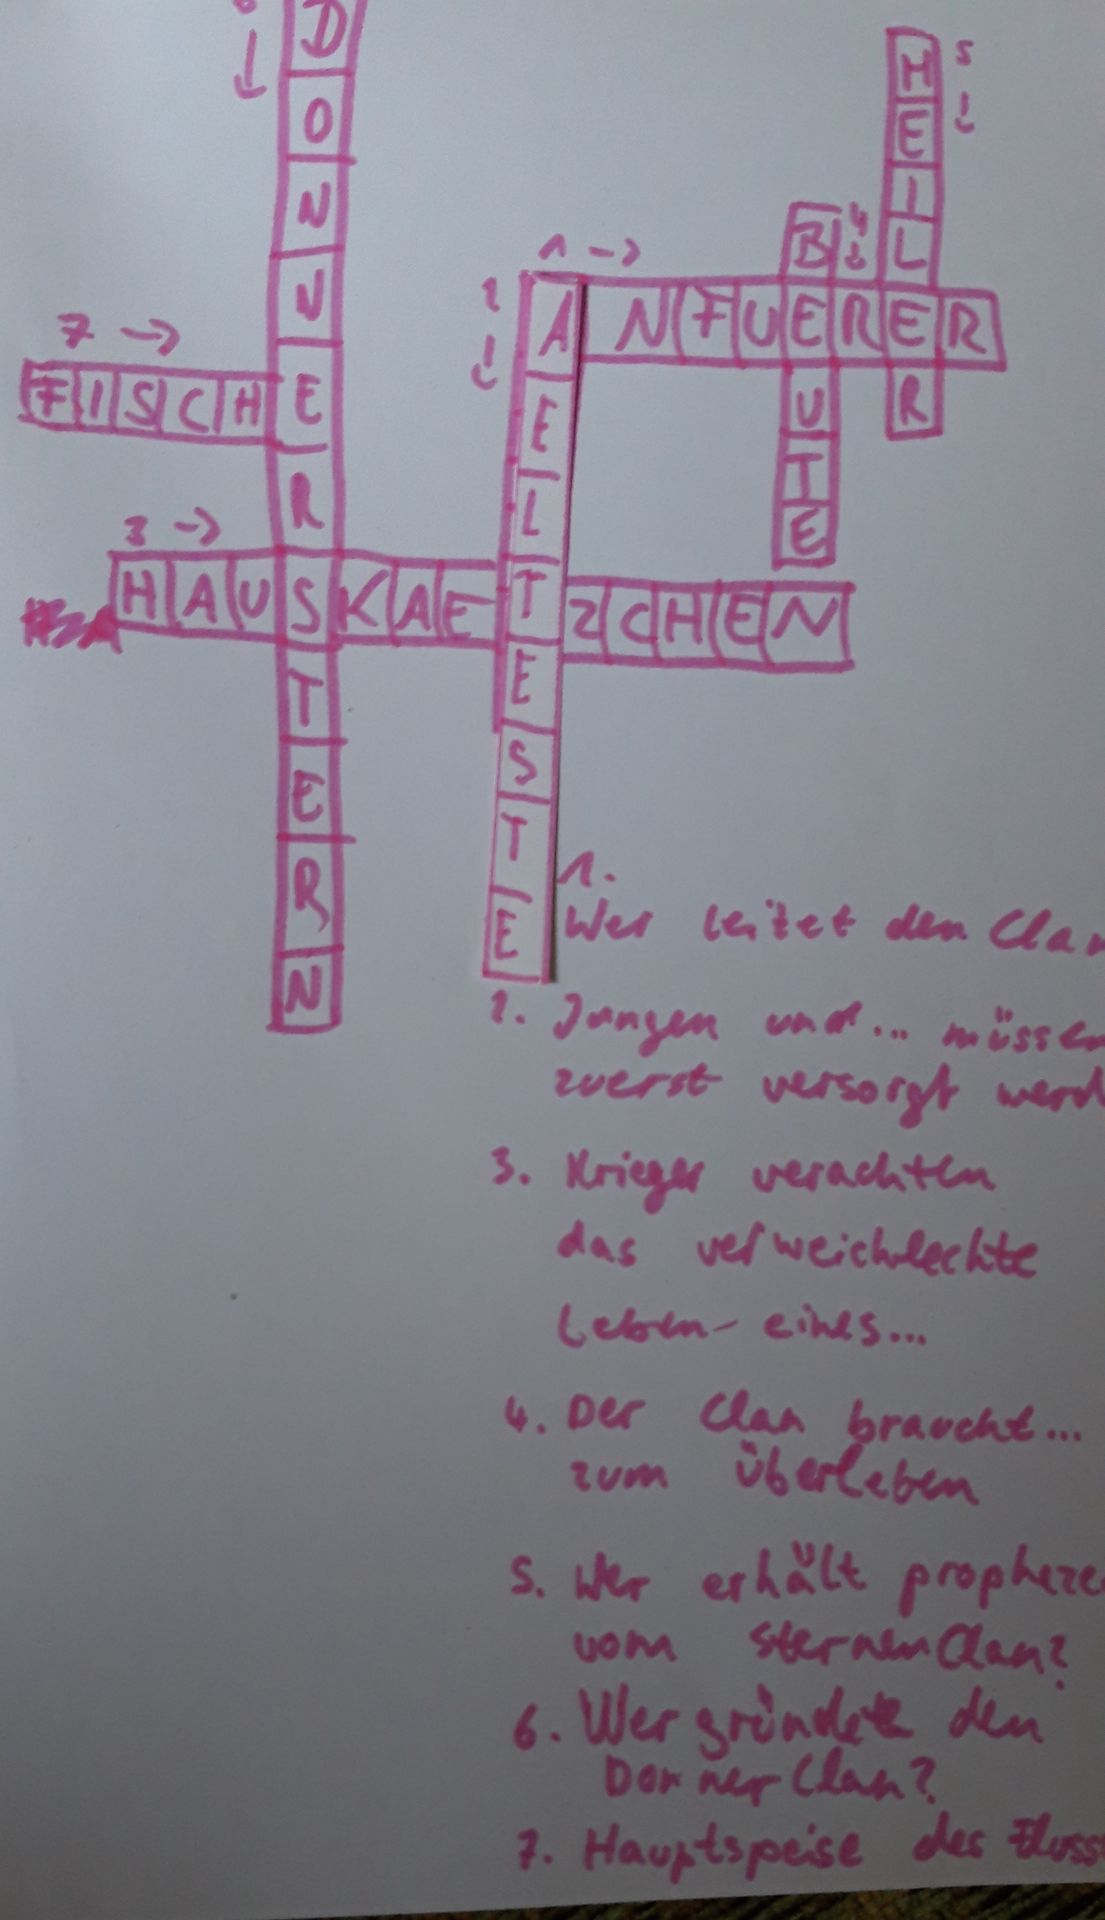 6 ↓
DONNERSTERN
5 ↓
HEILER
4 ↓
BEUTE
1 →
ANFUERER
2 ↓
AELTESTE
7 →
FISCH
3 →
HAUSKAETZCHEN
1.
Wer leitet den Clan
2. Jungen und... müssen
zuerst versorgt werd
3. Krieger verachten
das verweichlechte
Leben eines...
4. Der Clan braucht...
zum überleben
5. Wer erhält propheze
vom SternenClan?
6. Wer gründete den
DonnerClan?
7. Hauptspeise des Fluss